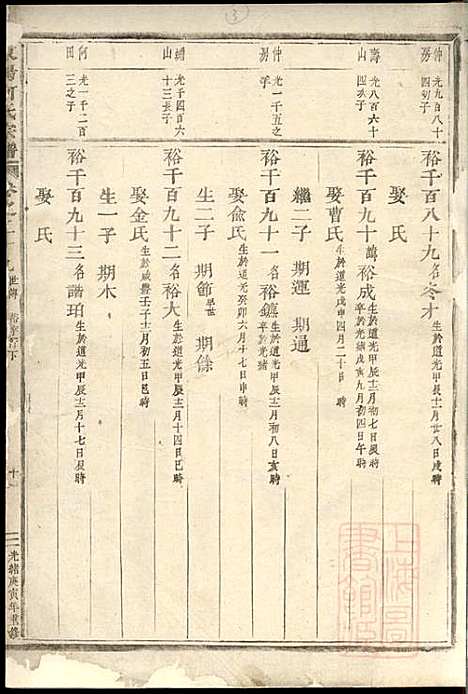 仲房 光九百八十四幼子
裕千百八十九名冬才 生於道光甲辰十二月廿八日戌時
娶 氏
海山 光八百六十四次子
裕千百九十 諱裕成 生於道光甲辰十二月初七日辰時 卒於光緒戊寅九月初四日午時
娶曹氏 生於道光戊申四月二十日 時
繼二子 期運 期通
仲房 光一千五之子
裕千百九十一名裕鑣 生於道光甲辰十二月初八日亥時 卒於光緒
娶俞氏 生於道光癸卯六月十七日申時
生二子 期節 早世 期餘
綃山 光千四百六十三長子
裕千百九十二名裕大 生於道光甲辰十一月十四日巳時
娶金氏 生於咸豐壬子十二月初五日巳時
生一子 期木
何田 光一千二百三之子
裕千百九十三名諧珀 生於道光甲辰十二月十七日辰時
娶 氏
何氏宗譜 世傳 下
十
光緒庚寅年重修
上海圖書館藏
3